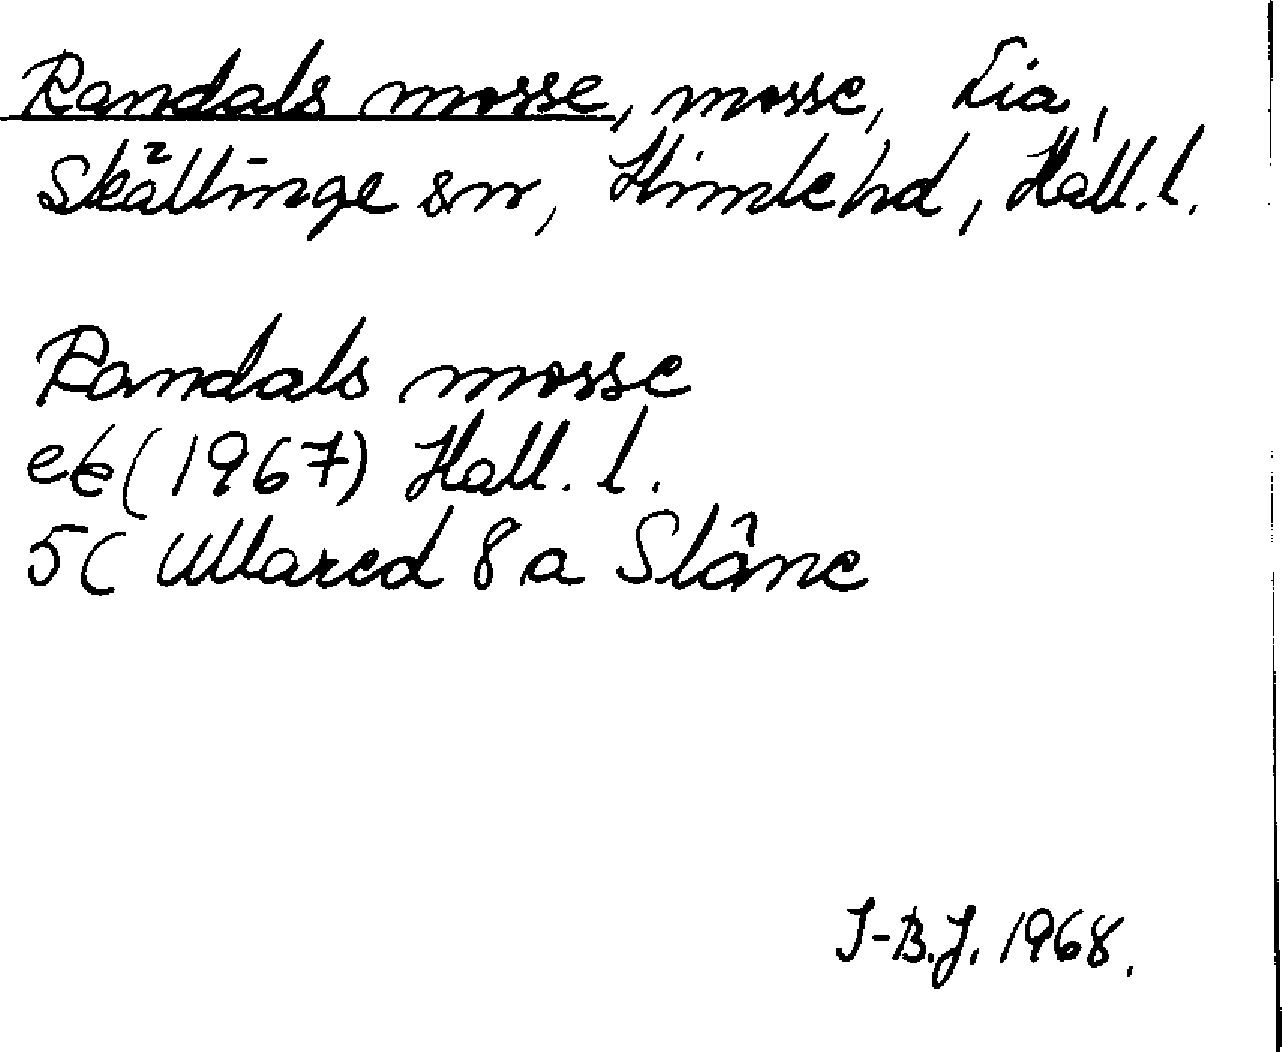 Randals mosse, mosse, Lia,
Skällinge sn, Himle hd, Hall. l.
Randals mosse
ek (1967) Hall. l.
5C Ullared 8 a Slåne
J-B.J. 1968.